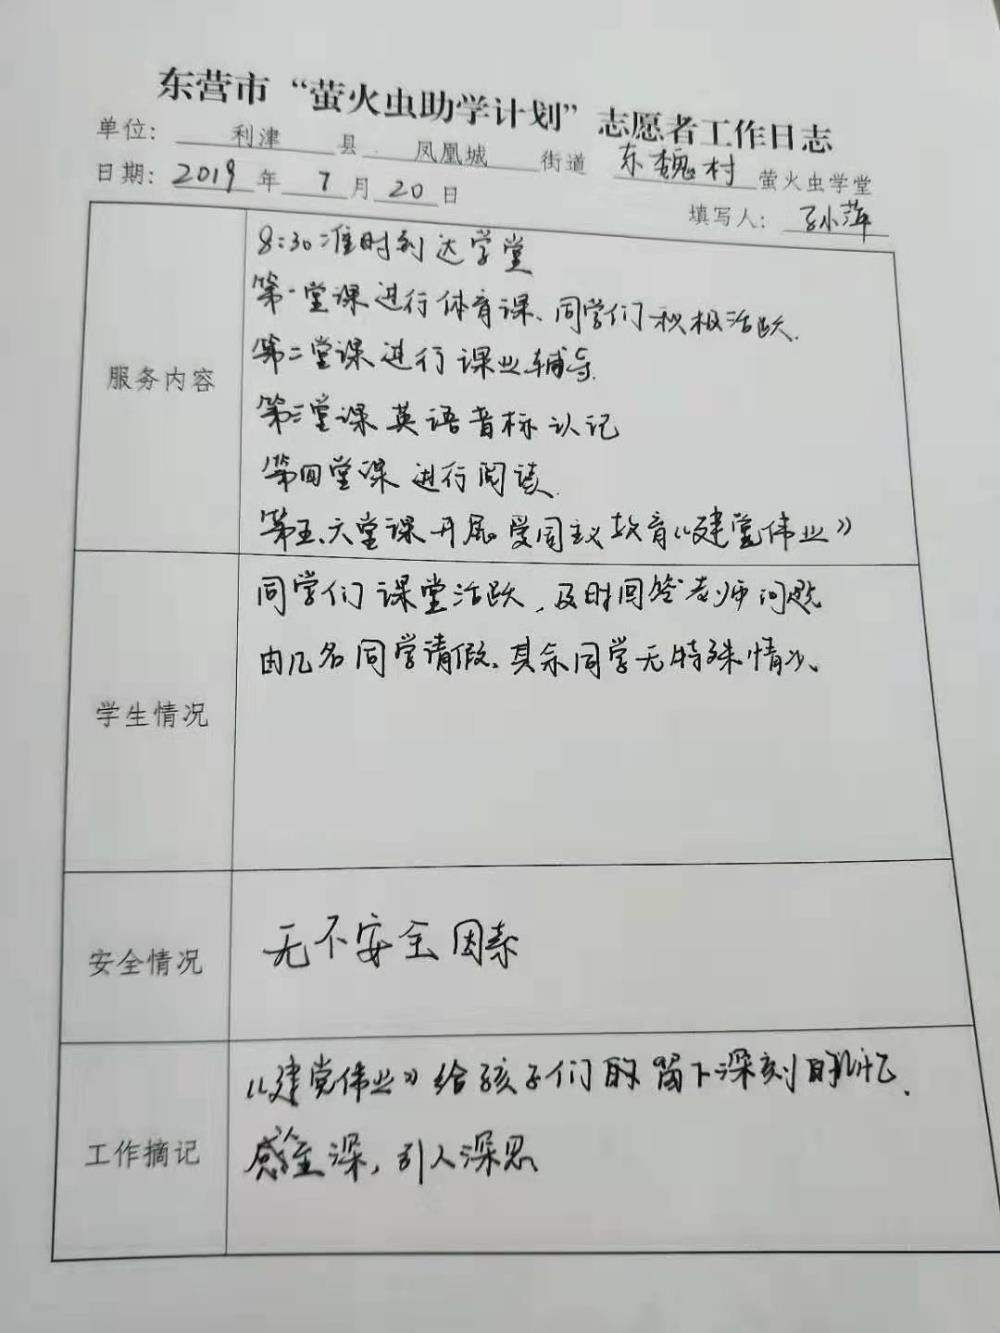 东营市“萤火虫助学计划”志愿者工作日志
单位：利津县凤凰城街道东魏村萤火虫学堂
日期：2019年7月20日
填写人：孙萍
服务内容
8:30准时到达学堂
第一堂课进行体育课、同学们积极活跃.
第二堂课进行课业辅导.
第三堂课英语音标认记
第四堂课进行阅读.
第五、六堂课开展爱国主义教育《建党伟业》
学生情况
同学们课堂活跃，及时回答老师问题
由几名同学请假、其余同学无特殊情况、
安全情况
无不安全因素
工作摘记
《建党伟业》给孩子们留下深刻的记忆.
感至深，引人深思